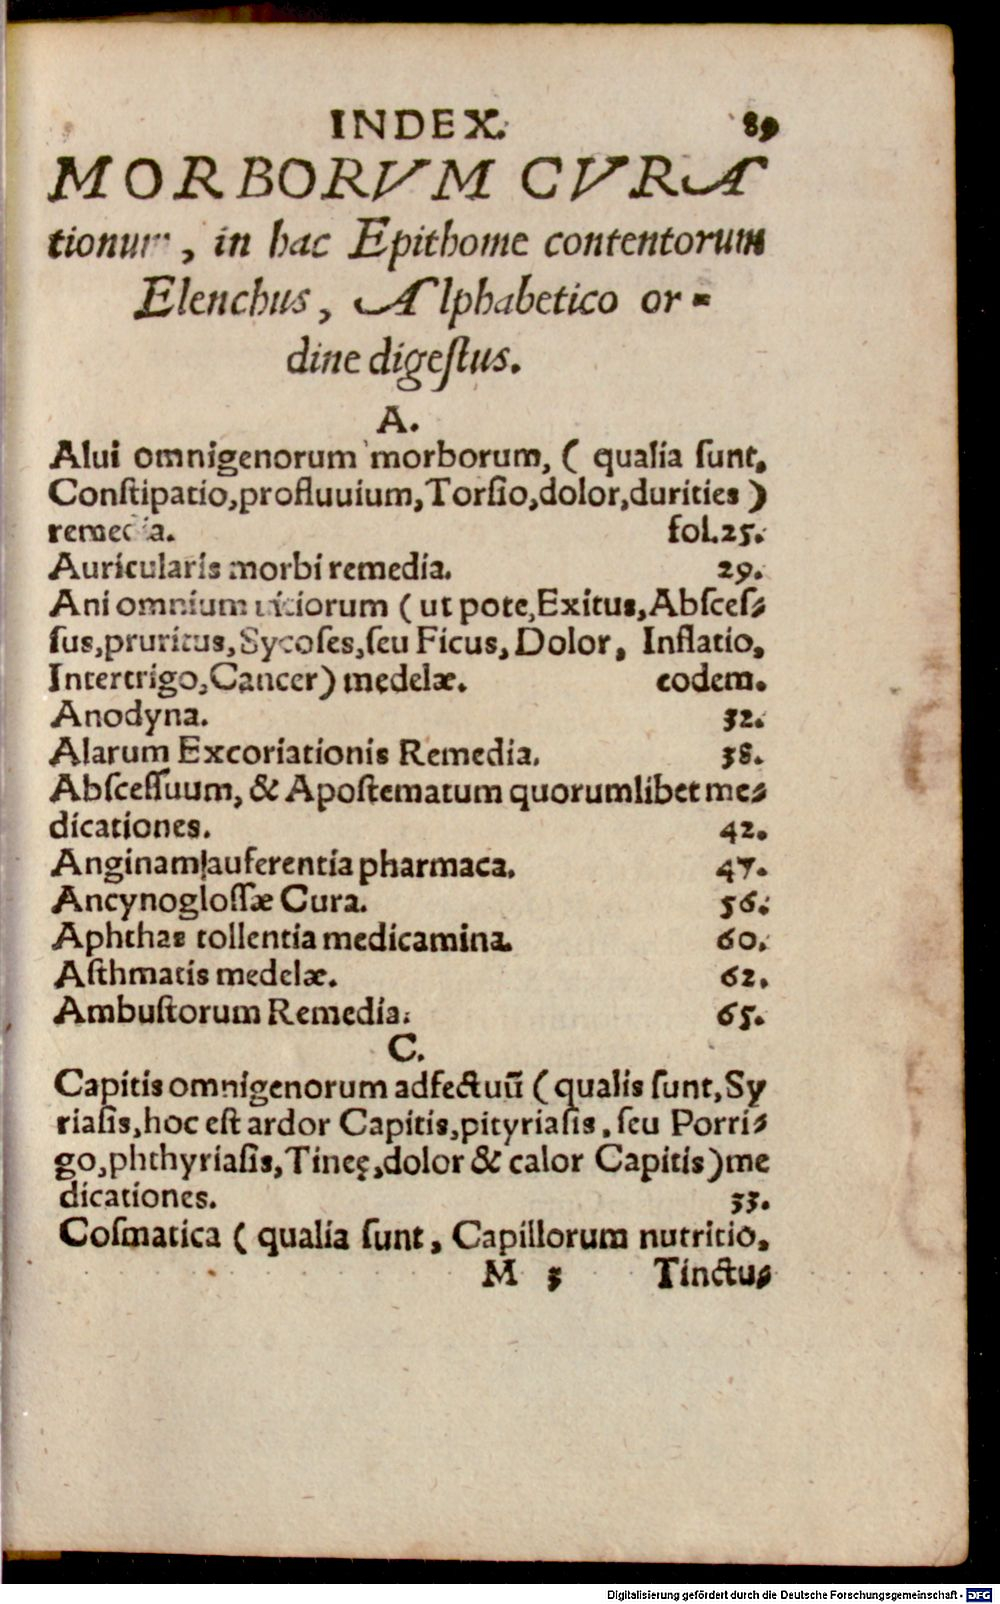 INDEX. 89
MORBORVM CVRA
tionum, in hac Epithome contentorum
Elenchus, Alphabetico or-
dine digeſtus.
A.
Alui omnigenorum morborum, ( qualia ſunt,
Conſtipatio,profluuium,Torſio,dolor,durities )
remedia. fol.25.
Auricularis morbi remedia. 29.
Ani omnium vitiorum ( ut pote,Exitus,Abſceſ-
ſus,pruritus,Sycoſes,ſeu Ficus, Dolor, Inflatio,
Intertrigo,Cancer) medelæ. eodem.
Anodyna. 32.
Alarum Excoriationis Remedia. 38.
Abſceſſuum, & Apoſtematum quorumlibet me-
dicationes. 42.
Anginam auferentia pharmaca. 47.
Ancynogloſſæ Cura. 56.
Aphthas tollentia medicamina. 60.
Aſthmatis medelæ. 62.
Ambuſtorum Remedia. 65.
C.
Capitis omnigenorum adfectuũ ( qualis ſunt, Sy
riaſis,hoc eſt ardor Capitis,pityriaſis, ſeu Porri-
go,phthyriaſis,Tineę,dolor & calor Capitis)me
dicationes. 33.
Coſmatica ( qualia ſunt, Capillorum nutritio,
M 3 Tinctu-
Digitalisierung gefördert durch die Deutsche Forschungsgemeinschaft - DFG